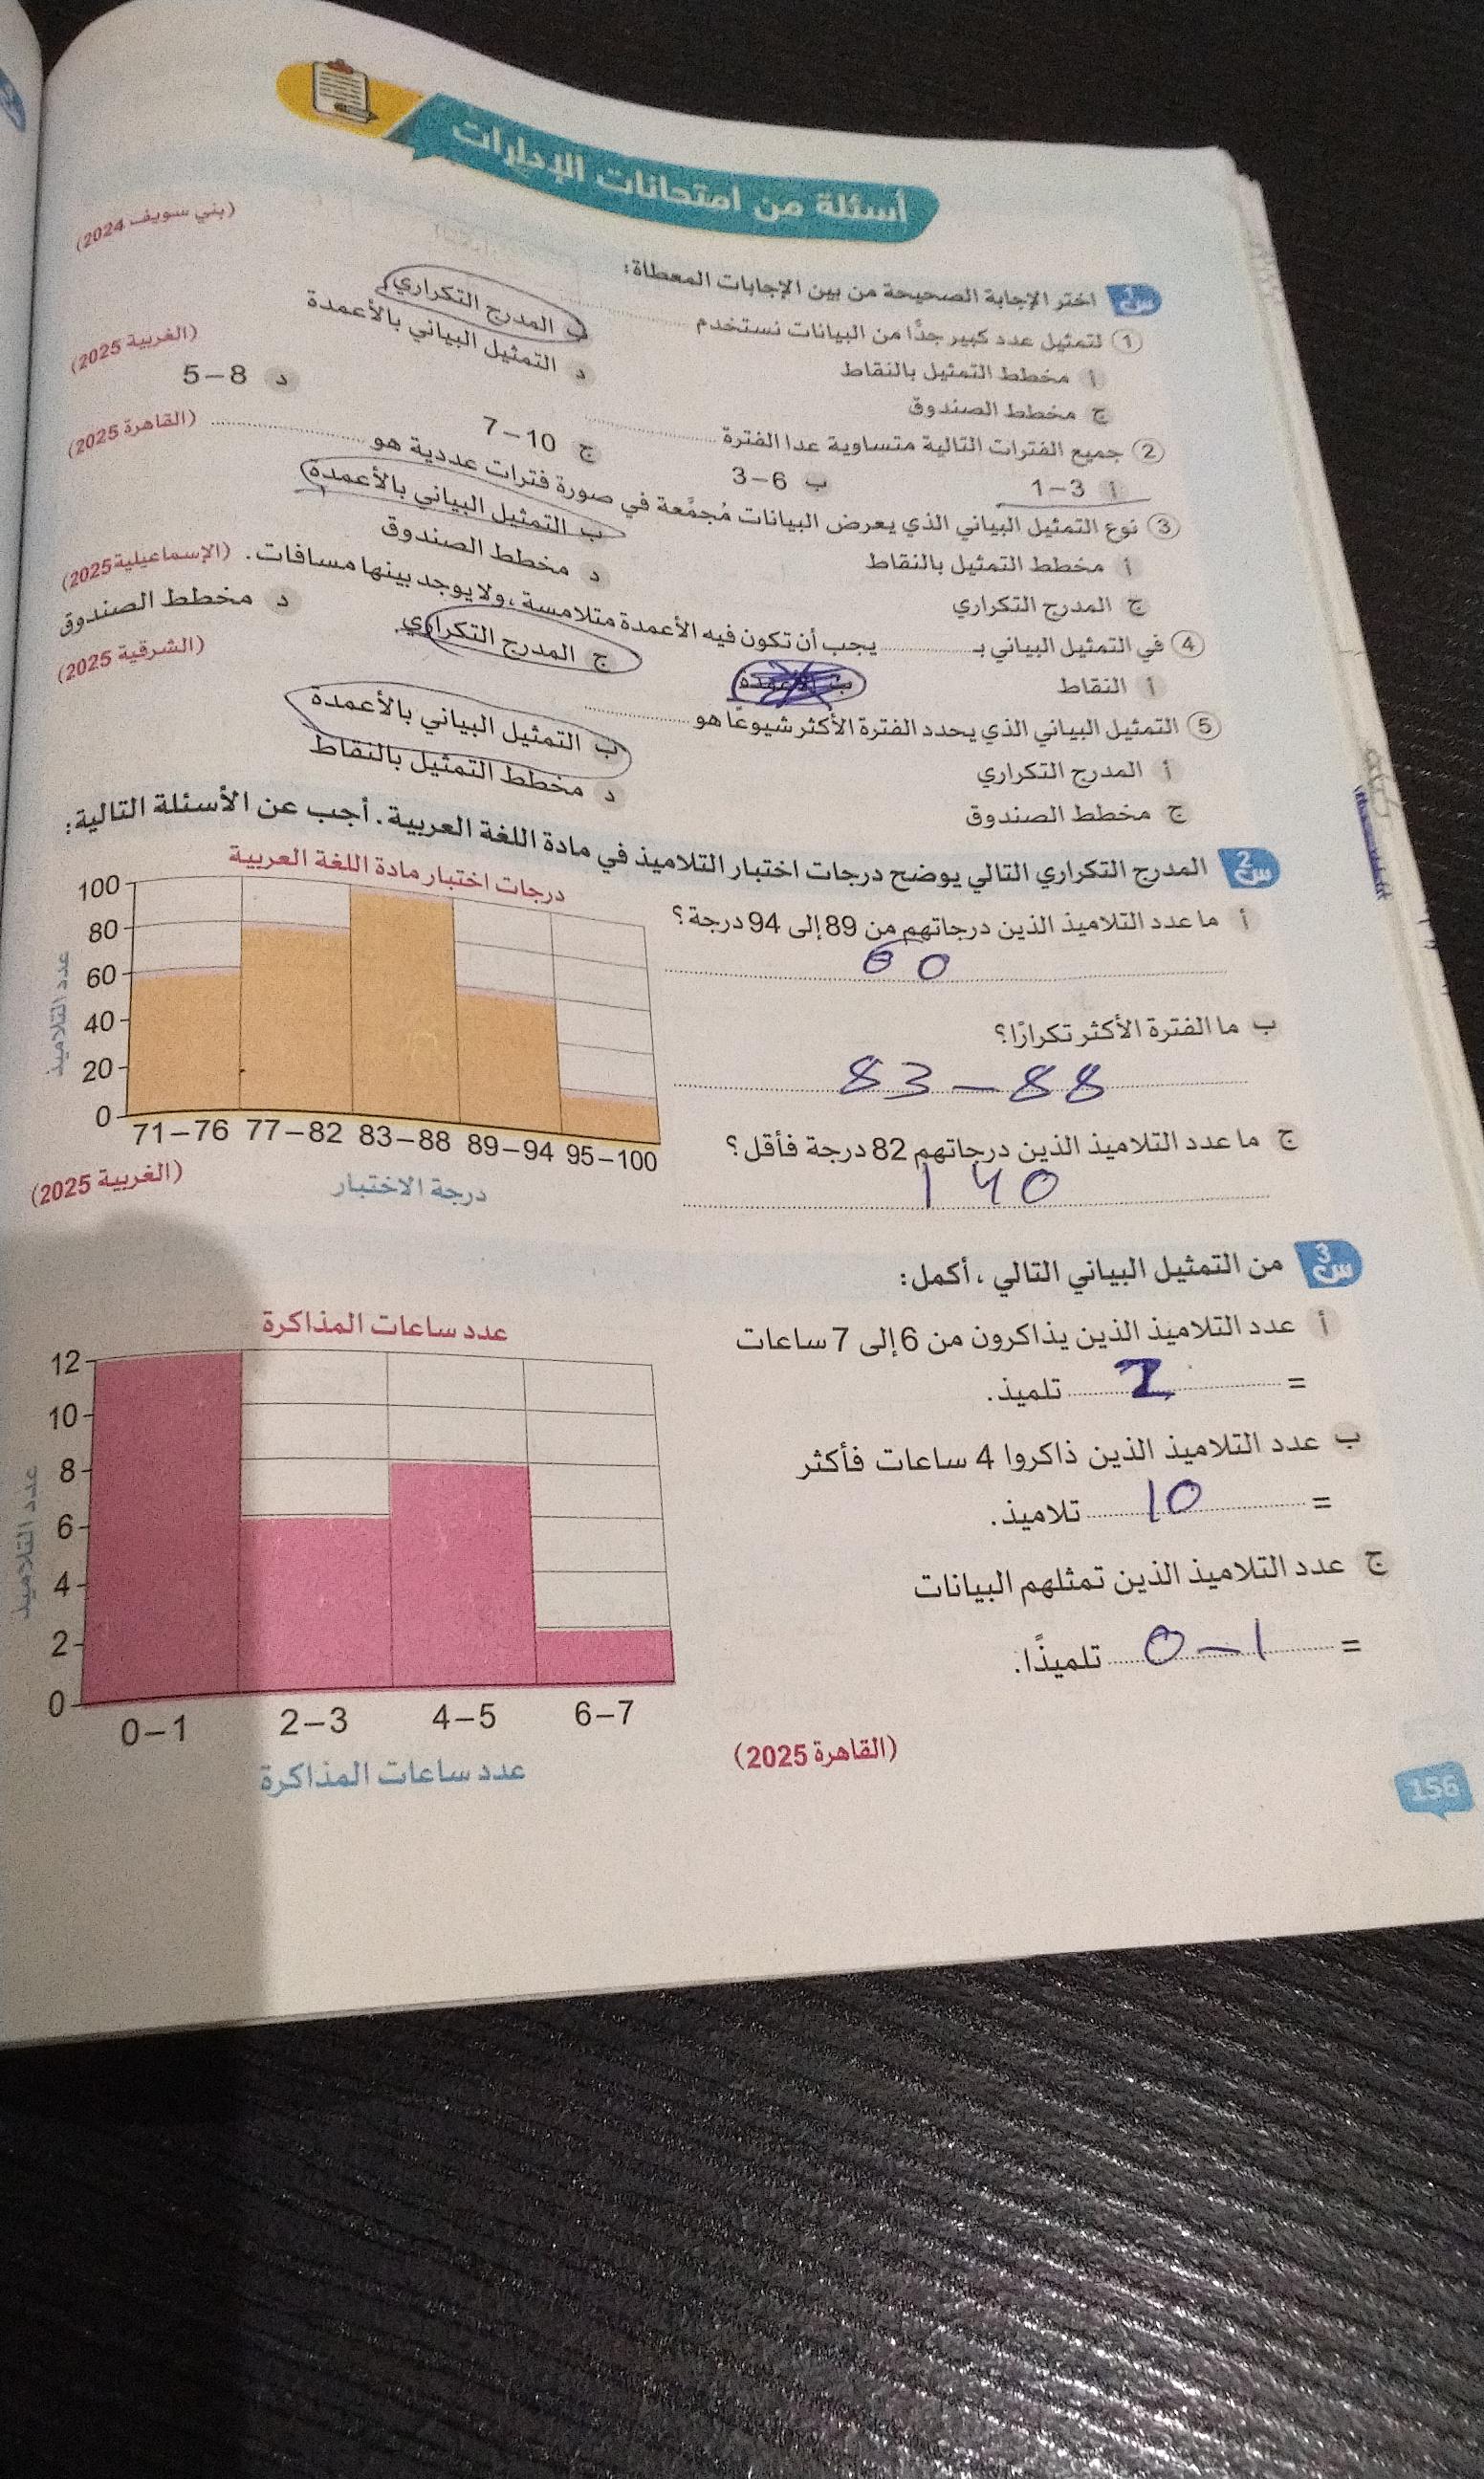 أسئلة من امتحانات الإدارات
س1 اختر الإجابة الصحيحة من بين الإجابات المعطاة:
1 لتمثيل عدد كبير جدًّا من البيانات نستخدم ........ (بني سويف 2024)
أ مخطط التمثيل بالنقاط ب المدرج التكراري
ج مخطط الصندوق د التمثيل البياني بالأعمدة
2 جميع الفترات التالية متساوية عدا الفترة ........ (الغربية 2025)
أ 1-3 ب 3-6 ج 7-10 د 5-8
3 نوع التمثيل البياني الذي يعرض البيانات مُجمَّعة في صورة فترات عددية هو ........ (القاهرة 2025)
أ مخطط التمثيل بالنقاط ب التمثيل البياني بالأعمدة
ج المدرج التكراري د مخطط الصندوق
4 في التمثيل البياني بـ ........ يجب أن تكون فيه الأعمدة متلامسة، ولا يوجد بينها مسافات. (الإسماعيلية 2025)
أ النقاط ب الأعمدة ج المدرج التكراري د مخطط الصندوق
5 التمثيل البياني الذي يحدد الفترة الأكثر شيوعًا هو ........ (الشرقية 2025)
أ المدرج التكراري ب التمثيل البياني بالأعمدة
ج مخطط الصندوق د مخطط التمثيل بالنقاط
س2 المدرج التكراري التالي يوضح درجات اختبار التلاميذ في مادة اللغة العربية. أجب عن الأسئلة التالية:
أ ما عدد التلاميذ الذين درجاتهم من 89 إلى 94 درجة؟
60
ب ما الفترة الأكثر تكرارًا؟
83-88
ج ما عدد التلاميذ الذين درجاتهم 82 درجة فأقل؟
140
درجات اختبار مادة اللغة العربية
عدد التلاميذ
100
80
60
40
20
0
71-76 77-82 83-88 89-94 95-100
درجة الاختبار
(الغربية 2025)
س3 من التمثيل البياني التالي، أكمل:
أ عدد التلاميذ الذين يذاكرون من 6 إلى 7 ساعات
= 2 تلميذ.
ب عدد التلاميذ الذين ذاكروا 4 ساعات فأكثر
= 10 تلاميذ.
ج عدد التلاميذ الذين تمثلهم البيانات
= 0-1 تلميذًا.
(القاهرة 2025)
عدد ساعات المذاكرة
عدد التلاميذ
12
10
8
6
4
2
0
0-1 2-3 4-5 6-7
عدد ساعات المذاكرة
156